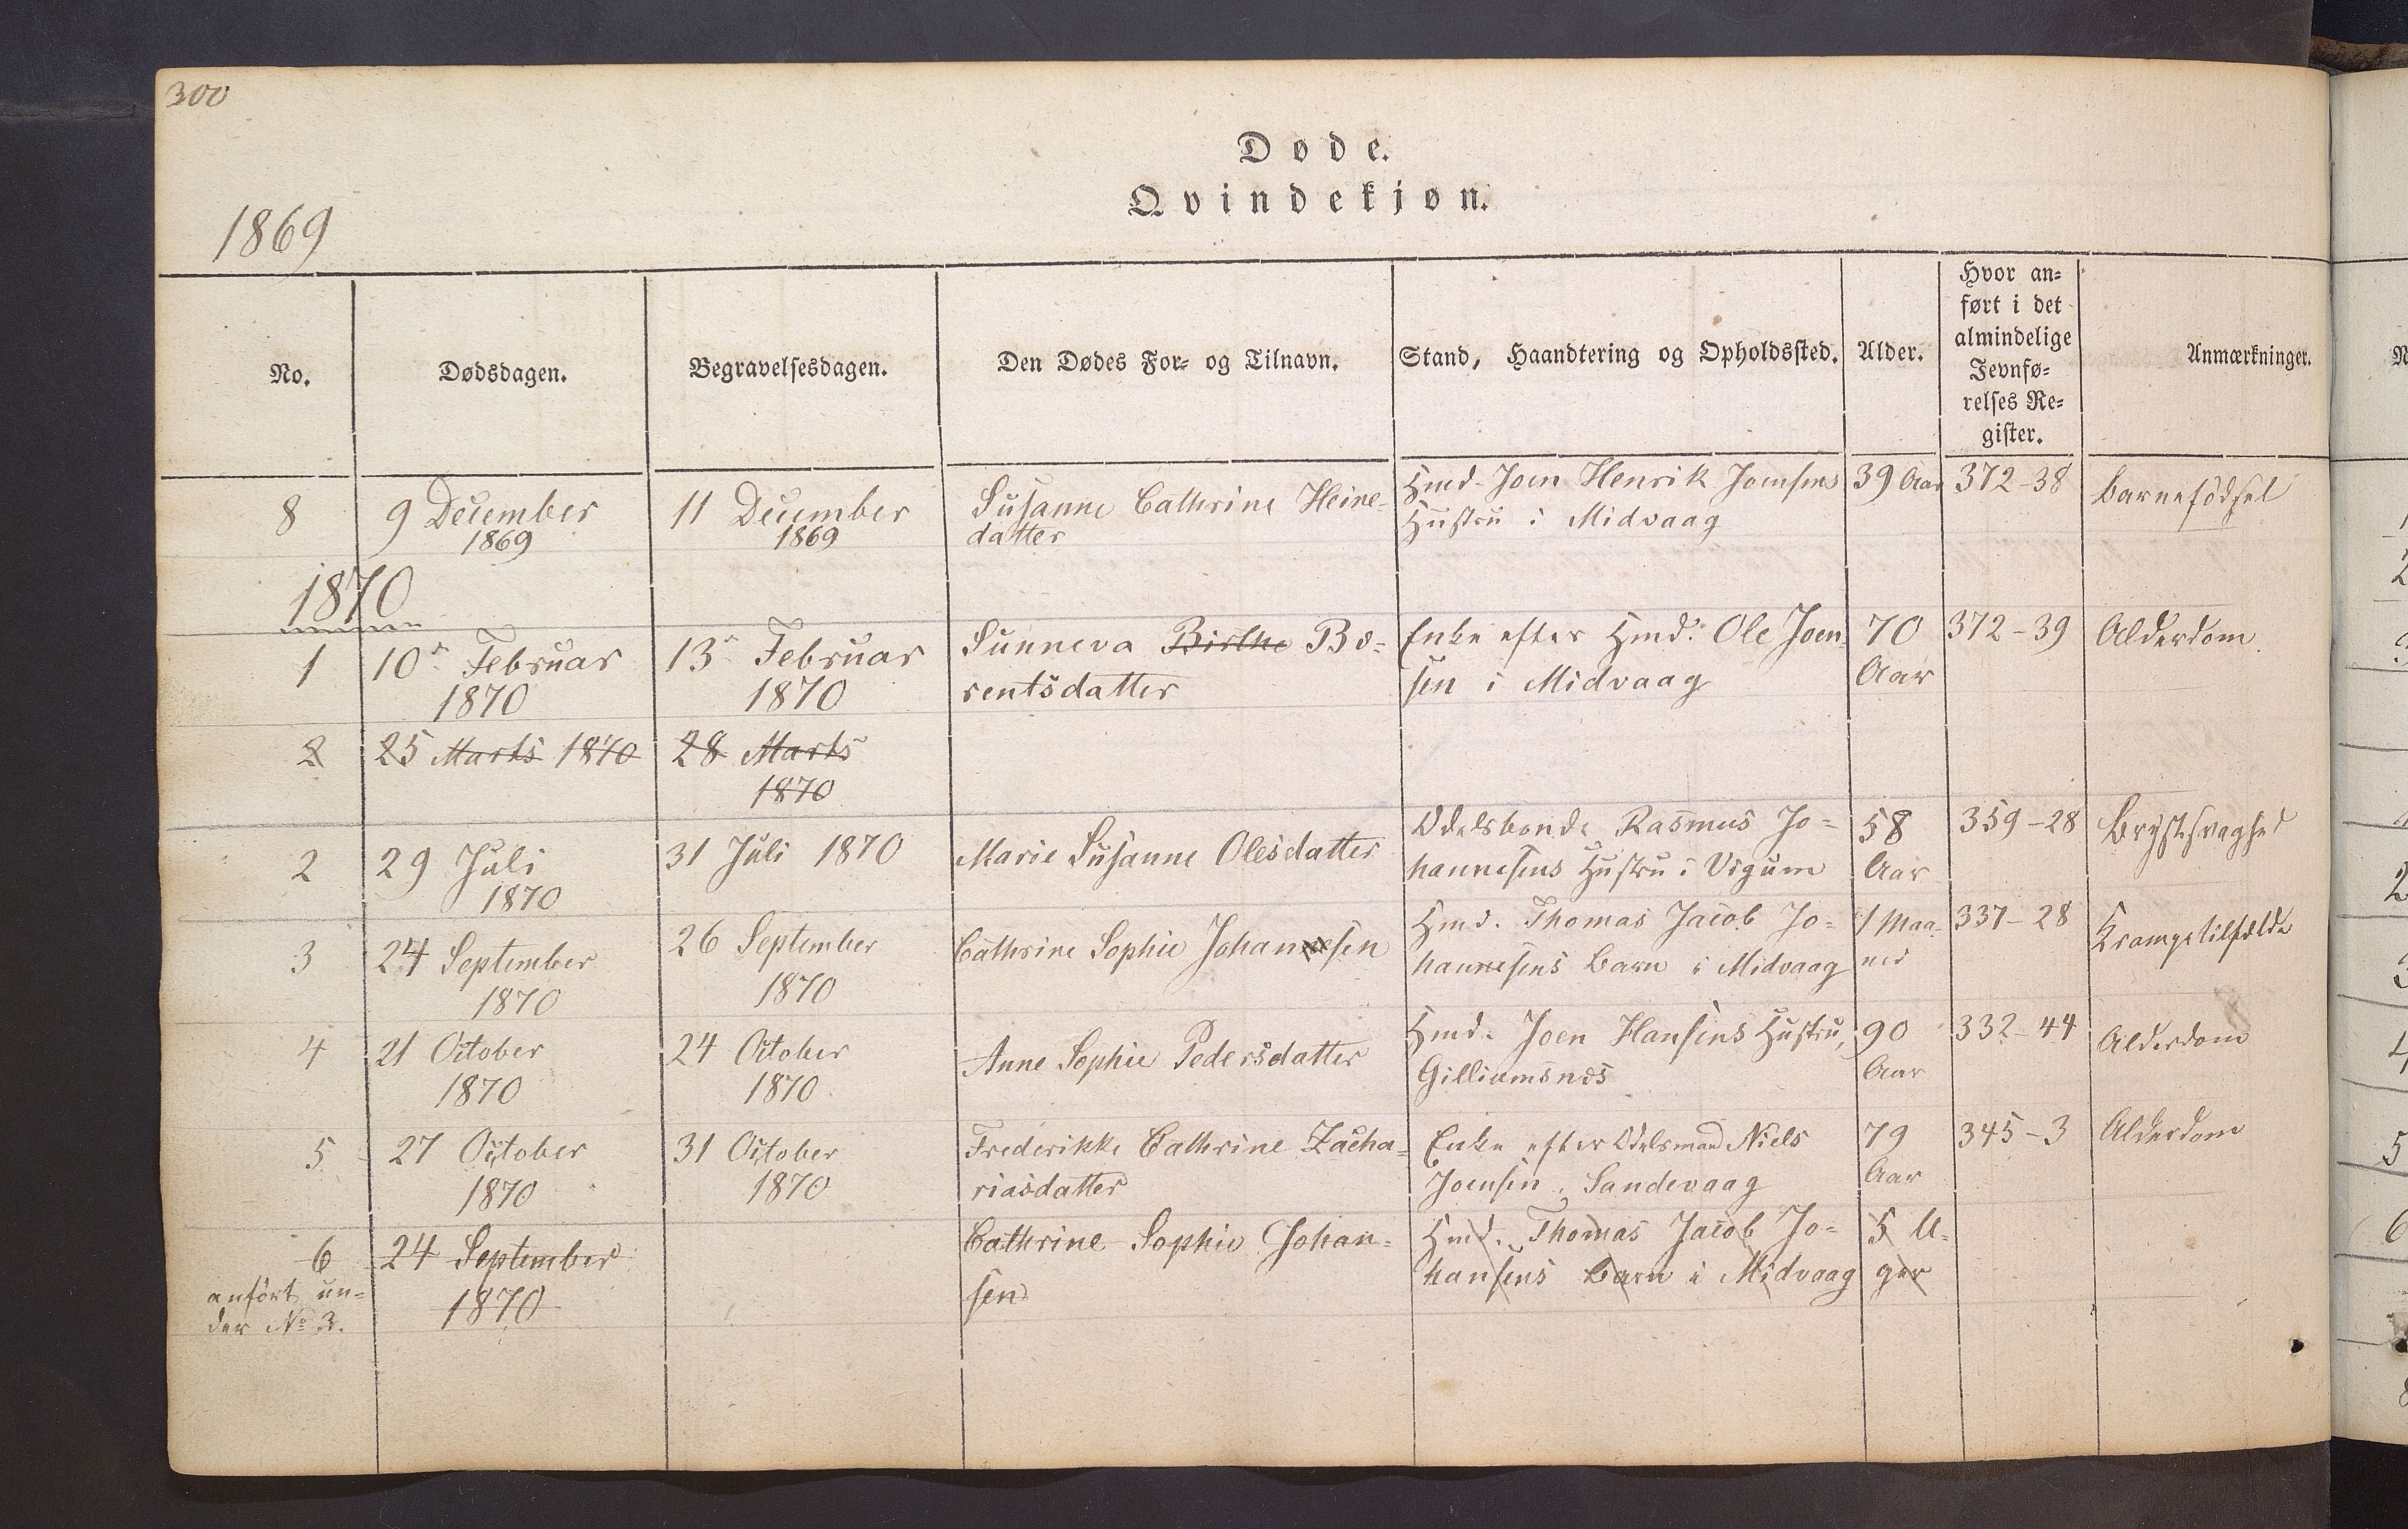 300
Døde.
Qvindekjøn.
1869
No.
Dødsdagen.
Begravelsesdagen.
Den Dødes For- og Tilnavn.
Stand, Haandtering og Opholdssted.
Alder.
Hvor an-
ført i det
almindelige
Jevnfø-
relses Re-
gister.
Anmærkninger.
8
9 December
1869
11 December
1869
Susanne Cathrine Heine-
datter
Hmd. Joen Henrik Joensens
Hustru i Midvaag
39 Aar
372-38
Barnefödsel
1870
1
10 Februar
1870
13 Februar
1870
Sunneva Birthe Bo-
rentsdatter
Enke efter Hmd. Ole Joen-
sen i Midvaag
70
Aar
372-39
Alderdom.
2
25 Marts 1870
28 Marts
1870
2
29 Juli
1870
31 Juli 1870
Marie Susanne Olesdatter
Odelsbonde Rasmus Jo-
hannesens Hustru i Vigum
58
Aar
359-28
Brystsvaghed
3
24 September
1870
26 September
1870
Cathrine Sophie Johannesen
Hmd. Thomas Jacob Jo-
hannesens Barn i Midvaag
1 Maa-
ned
337-28
Krampetilfælde
4
21 October
1870
24 October
1870
Anne Sophie Pedersdatter
Hmd. Joen Hansens Hustru,
Gilliamsnæs
90
Aar
332-44
Alderdom
5
27 October
1870
31 October
1870
Frederikke Cathrine Zacha-
riasdatter
Enke efter Odelsmand Niels
Joensen, Sandevaag
79
Aar
345-3
Alderdom
6
anfört un-
der No 3.
24 September
1870
Cathrine Sophie Johan-
sen
Hmd. Thomas Jacob Jo-
hansens Barn i Midvaag
5 U-
ger